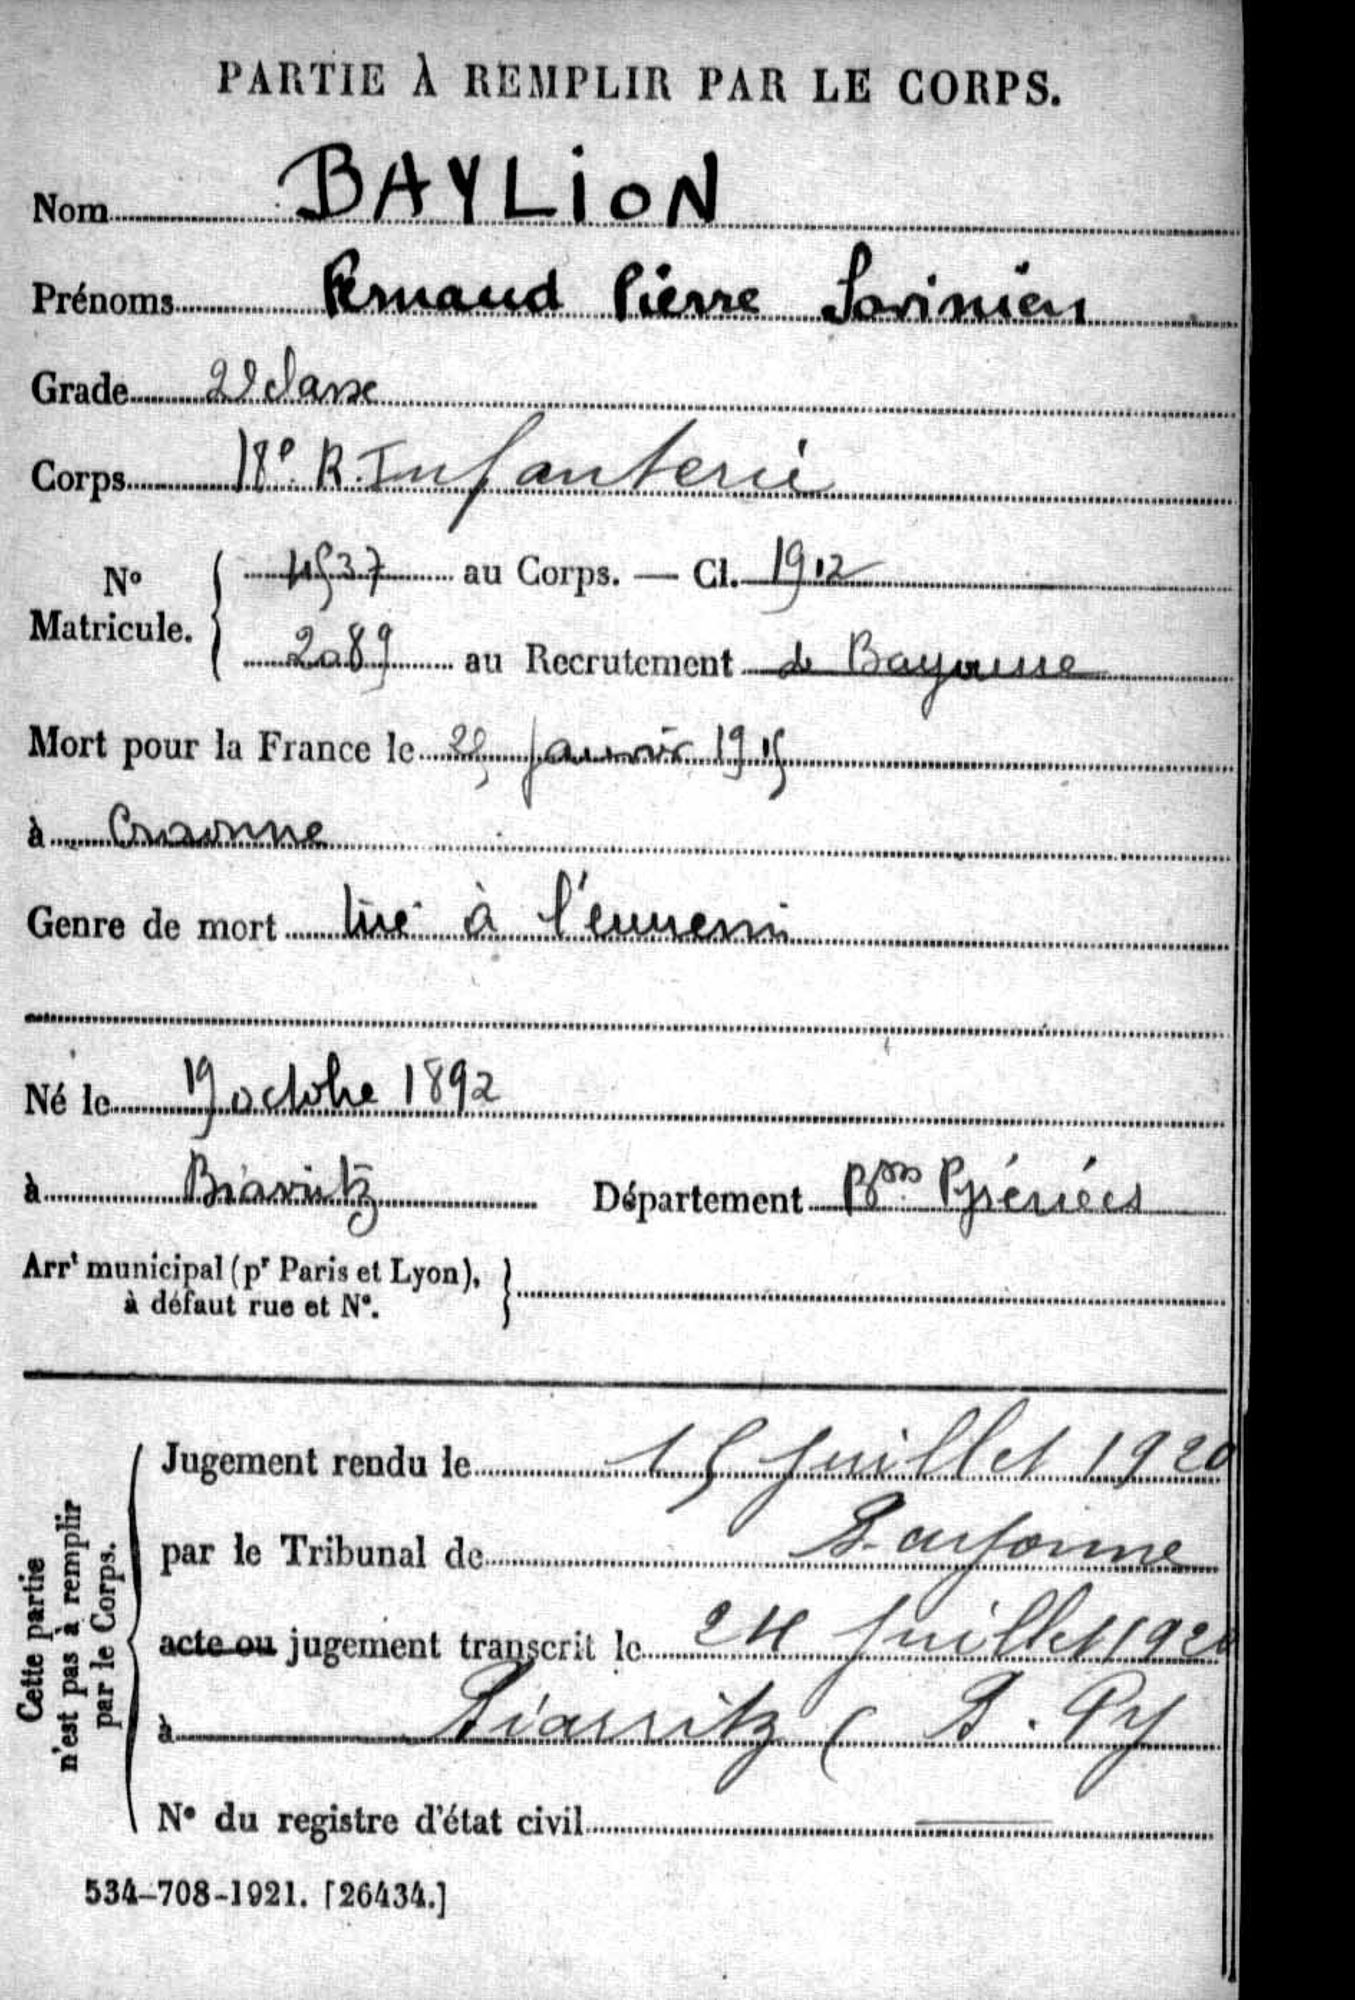 PARTIE À REMPLIR PAR LE CORPS.
Nom BAYLION
Prénoms Fernand Pierre Savinien
Grade 2e classe
Corps 18e R. Infanterie
No Matricule. 4537 au Corps. — Cl. 1912
2089 au Recrutement de Bayonne
Mort pour la France le janvier 1915
à Craonne
Genre de mort tué à l'ennemi
Né le 19 octobre 1892
à Biarritz Département Bses Pyrénées
Arrt municipal (pr Paris et Lyon),
à défaut rue et No.
Cette partie
n'est pas à remplir
par le Corps.
Jugement rendu le 15 juillet 1920
par le Tribunal de Bayonne
acte ou jugement transcrit le 24 juillet 1920
à Biarritz ( B. Py
No du registre d'état civil
534-708-1921. [26434.]